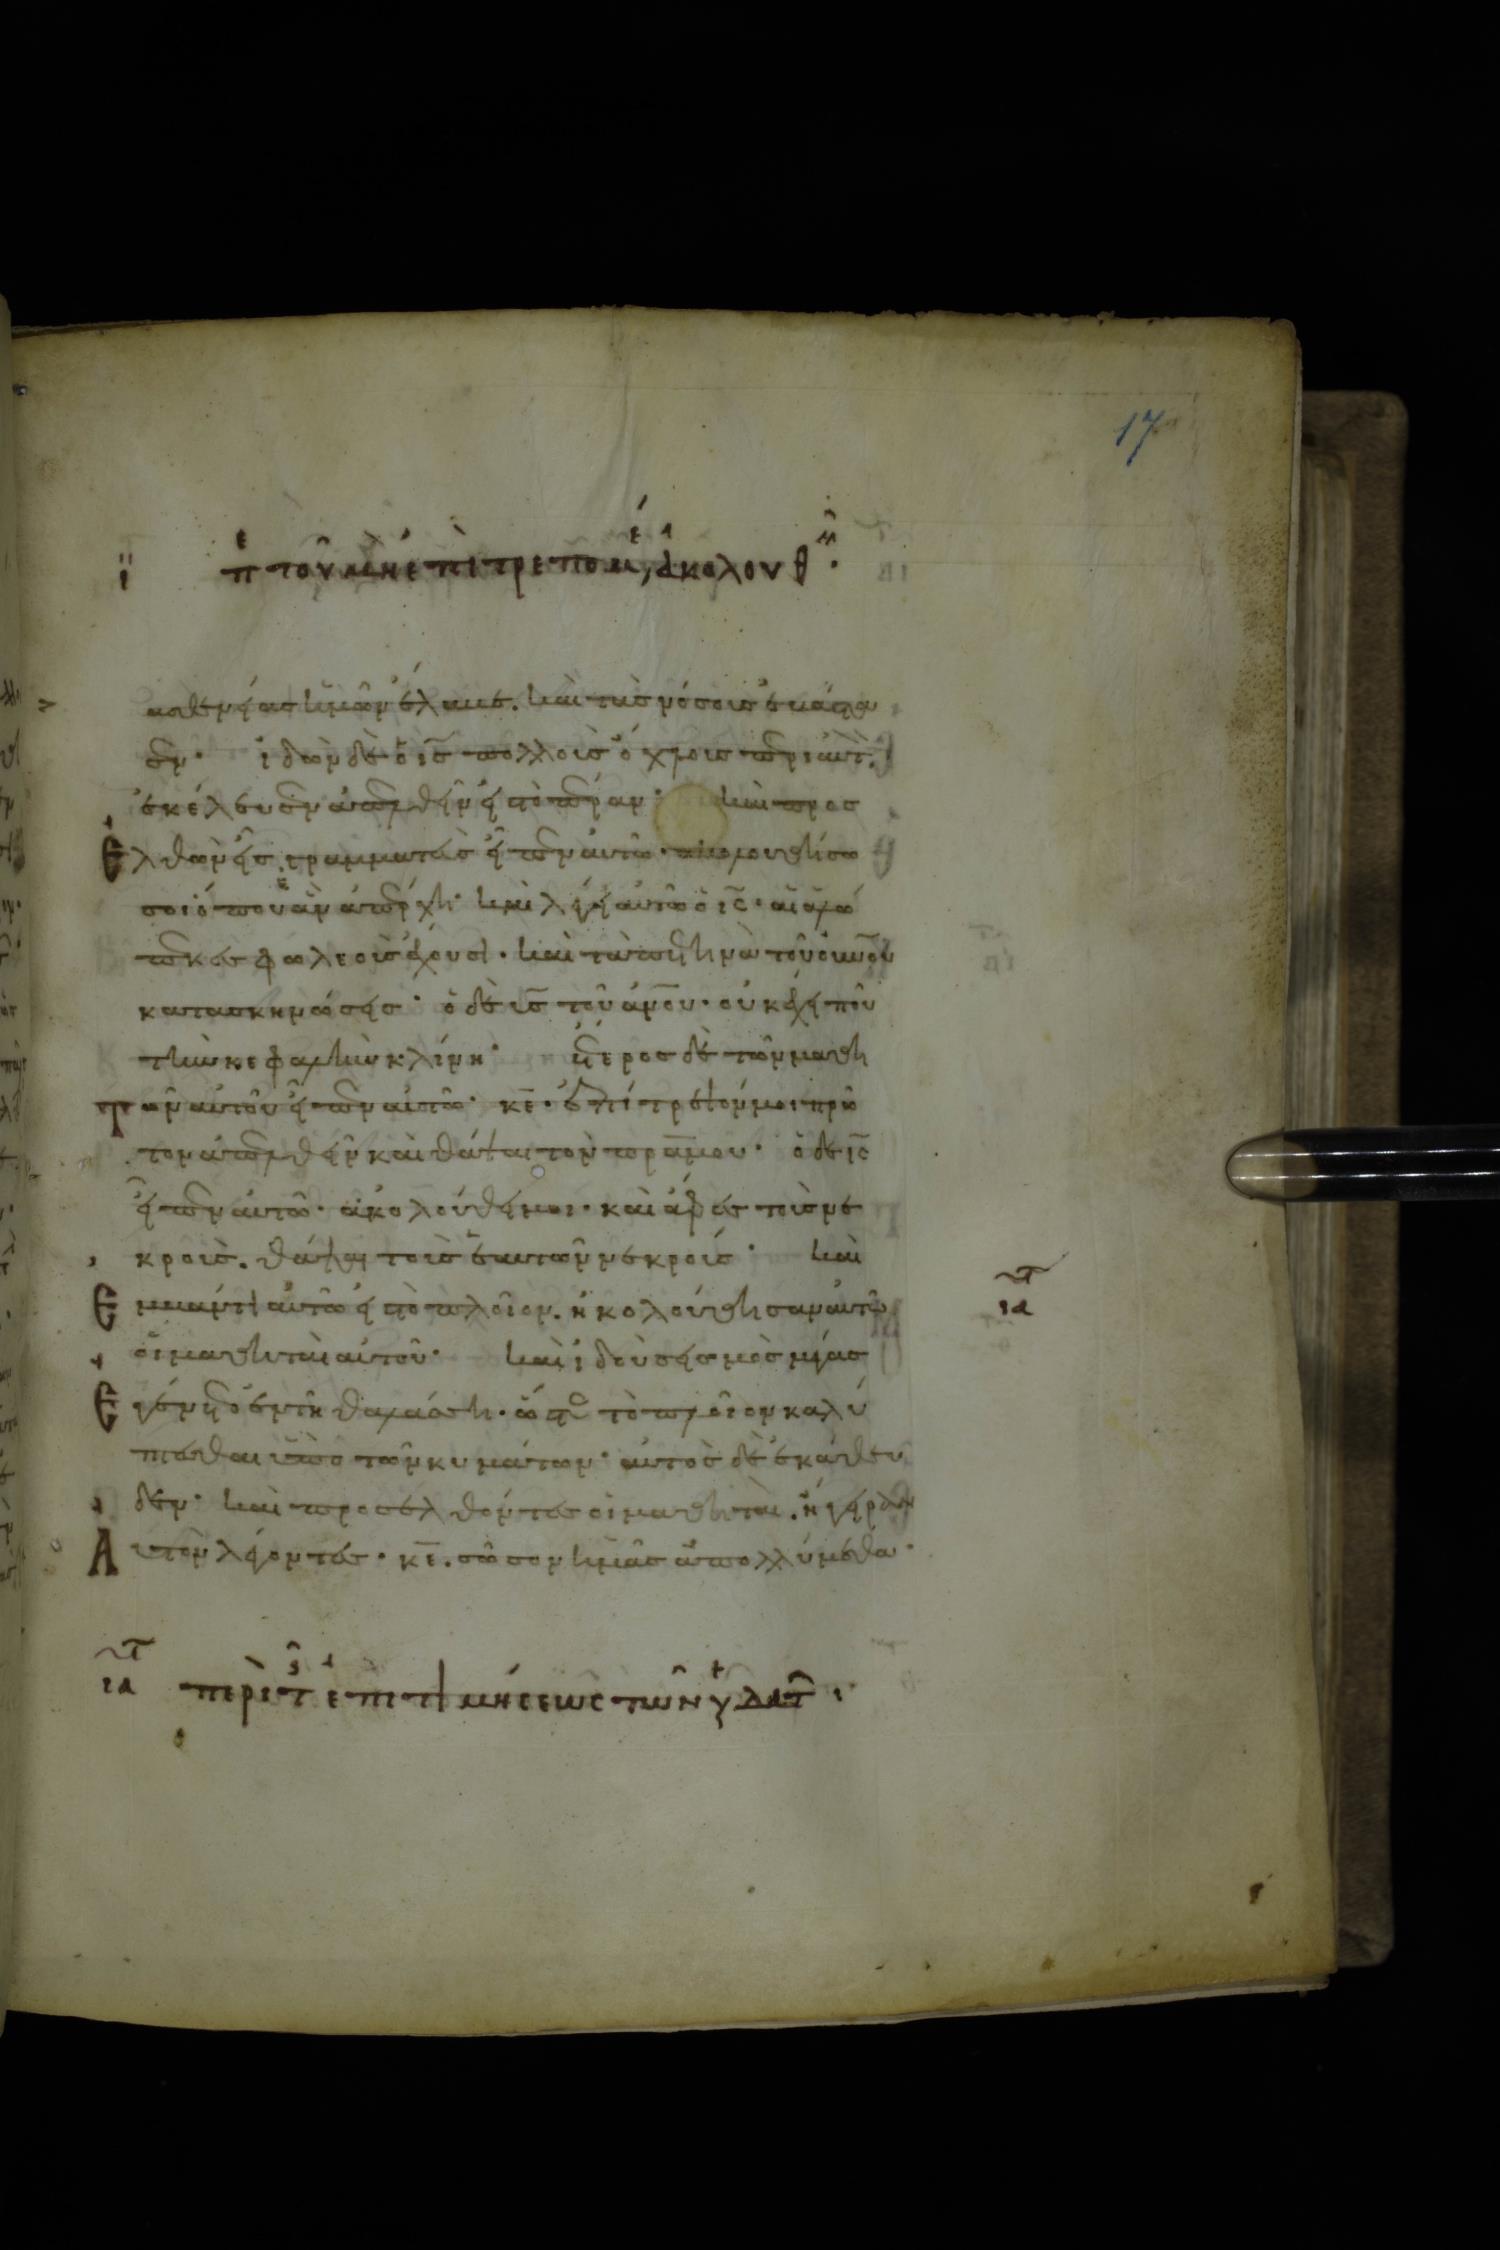 17
ϊ π<sup>ε</sup> τοῦ μὴ ἐπιτρεπομέ, ἀκολουθῆ·
ασθενείας ἡμῶν ἔλαβε. καὶ τὰς νόσους ἐβάστα
σεν· ἰδὼν δὲ ὁ ις πολλοὺς ὄχλους περὶ αὐτὸ.
ἐκέλευσεν ἀπελθεῖν εἰς τὸ πέραν· καὶ προσ
Ελθὼν εἷς γραμματεὺς εἶπεν αὐτῶ· ἀκολουθήσω
σοι ὅπου ἐὰν ἀπέρχη· καὶ λέγει αὐτῶ ὁ ις· αἱ ἀλώ
πεκες φωλεοὺς ἔχουσι· καὶ τὰ πετεινὰ τοῦ οὐνοῦ
κατασκηνώσεις· ὁ δὲ υς τοῦ ἀνου· οὐκ ἔχει ποῦ
τὴν κεφαλὴν κλίνη· ἕτερος δὲ τῶν μαθη
Τῶν αὐτοῦ εἶπεν αὐτῶ· κε· ἐπίτρεψόν μοι πρῶ
τον ἀπελθεῖν καὶ θάψαι τὸν πρα μου· ὁ δὲ ις
εἶπεν αὐτῶ· ἀκολούθει μοι· καὶ ἄφες τοὺς νε
κροὺς. θάψαι τοὺς ἑαυτῶν νεκρούς· καὶ
Εμβάντι αὐτῶ εἰς τὸ πλοῖον. ἠκολούθησαν αὐτῶ
ια
οἱ μαθηταὶ αὐτοῦ· καὶ ἰδοὺ σεισμὸς μέγας
Εγένετο ἐν τῆ θαλάσση· ὥστε τὸ πλοῖον καλύ
πτεσθαι ὑπὸ τῶν κυμάτων· αὐτὸς δὲ ἐκάθευ
δεν· καὶ προσελθόντες οἱ μαθηταὶ. ἤγειραν
Αυτὸν λέγοντες· κε. σῶσον ἡμᾶς ἀπολλύμεθα·
ια περὶ τ ἐπιτιμήσεως τῶν ὑδάτ